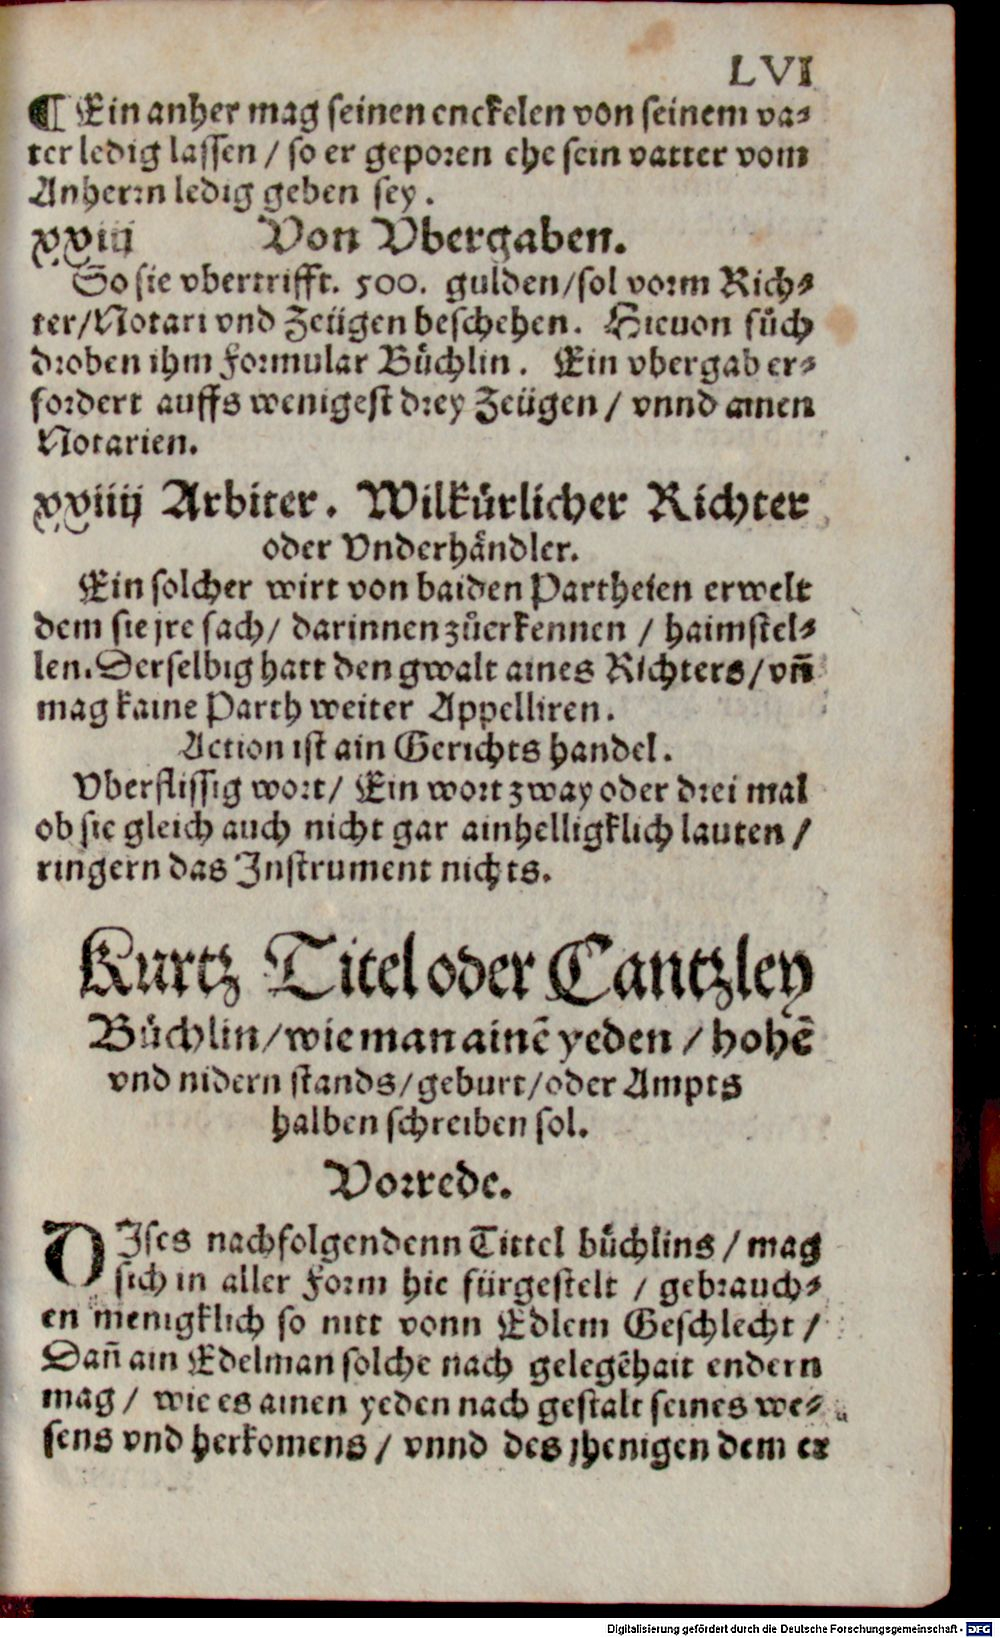 LVI
¶ Ein anher mag seinen enckelen von seinem va⸗
ter ledig lassen / so er geporen ehe sein vatter vom
Anherrn ledig geben sey.
xxiij Von Vbergaben.
So sie vbertrifft. 500. gulden/sol vorm Rich⸗
ter/Notari vnd Zeügen beschehen. Hieuon suͦch
droben ihm Formular Buͤchlin. Ein vbergab er⸗
fordert auffs wenigest drey Zeügen / vnnd ainen
Notarien.
xxiiij Arbiter. Wilkürlicher Richter
oder Vnderhaͤndler.
Ein solcher wirt von baiden Partheien erwelt
dem sie jre sach/ darinnen zuͦerkennen / haimstel⸗
len. Derselbig hatt den gwalt aines Richters/ vñ
mag kaine Parth weiter Appelliren.
Action ist ain Gerichts handel.
Vberflissig wort/ Ein wort zway oder drei mal
ob sie gleich auch nicht gar ainhelligklich lauten /
ringern das Instrument nichts.
Kurtz Titel oder Cantzley
Buͤchlin/wie man ainē yeden / hohē
vnd nidern stands/geburt/oder Ampts
halben schreiben sol.
Vorrede.
DIses nachfolgendenn Tittel buͤchlins / mag
sich in aller Form hie fürgestelt / gebrauch⸗
en menigklich so nitt vonn Edlem Geschlecht /
Dañ ain Edelman solche nach gelegēhait endern
mag / wie es ainen yeden nach gestalt seines we⸗
sens vnd herkomens / vnnd des jhenigen dem er
Digitalisierung gefördert durch die Deutsche Forschungsgemeinschaft - DFG